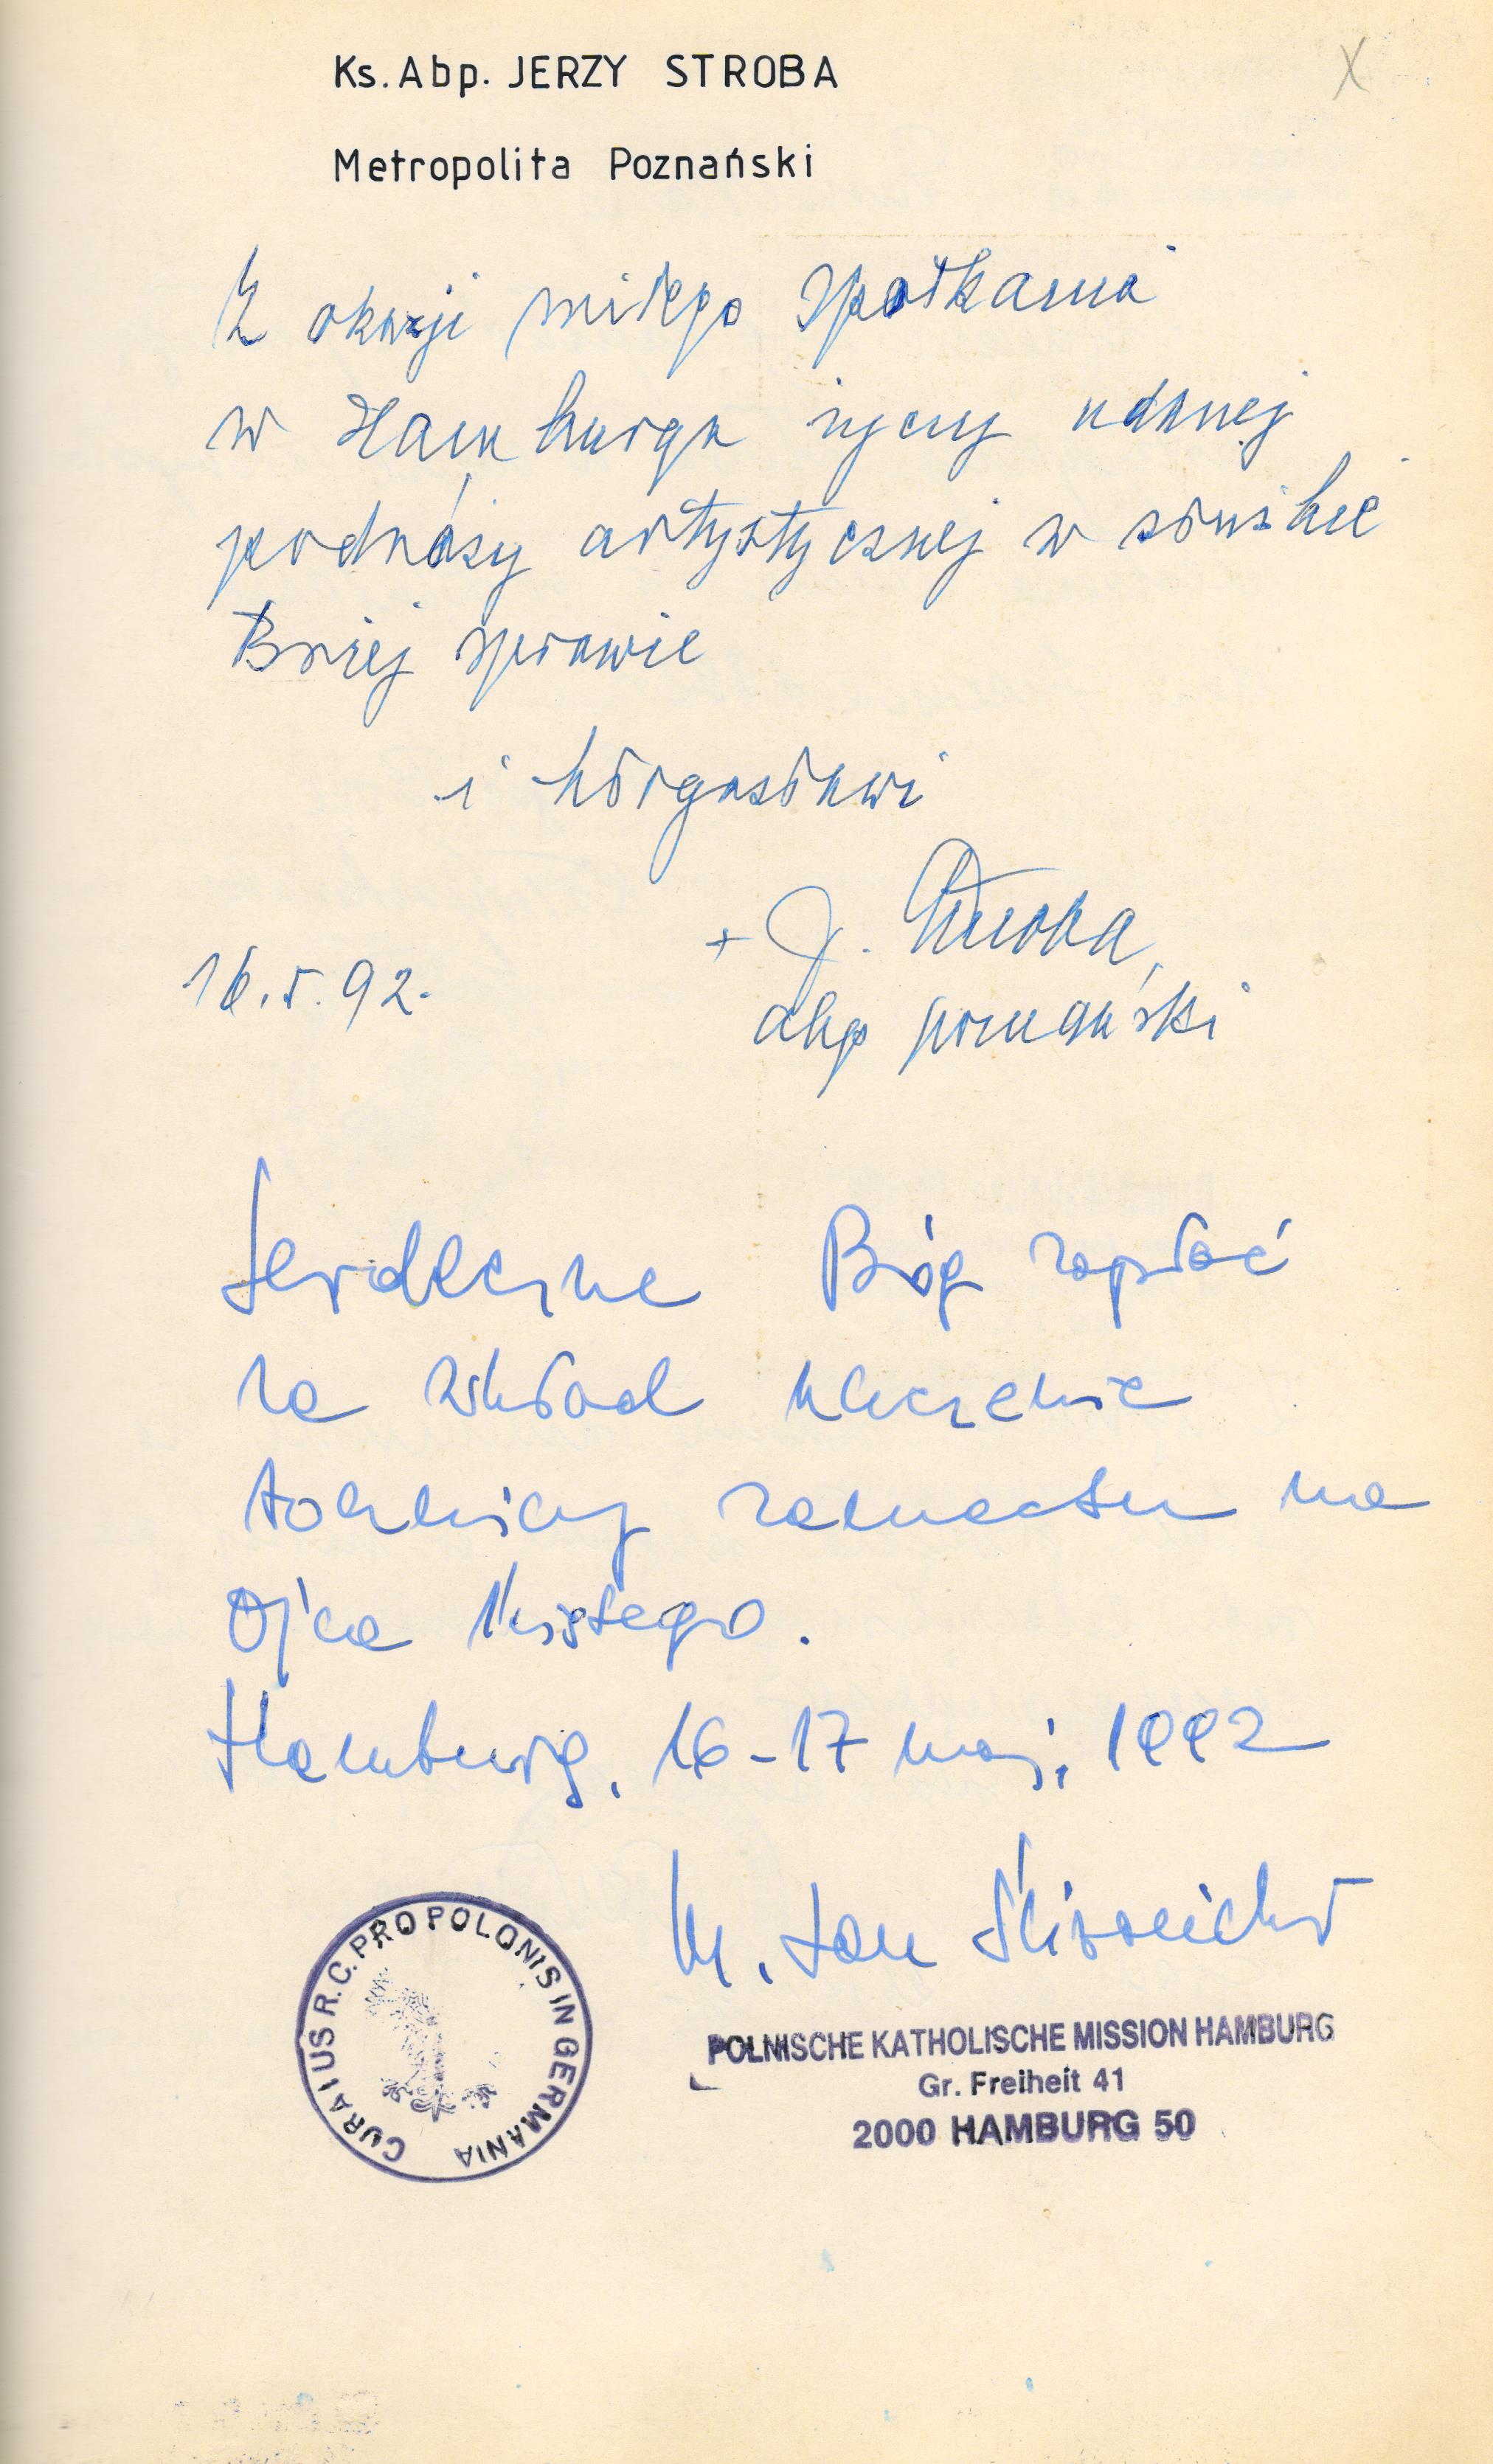 Ks. Abp. JERZY STROBA
Metropolita Poznański
Z okazji miłego spotkania
w Hamburgu życzy udanej
podróży artystycznej w służbie
Bożej sprawie
i błogosławi
+ J. Stroba,
abp poznański
16.5.92.
Serdeczne Bóg zapłać
za wkład uczczenie
rocznicy zamachu na
Ojca Świętego.
Hamburg, 16-17 maj, 1992
Jan
CURA IUS R.C. PRO POLONIS IN GERMANIA
POLNISCHE KATHOLISCHE MISSION HAMBURG
Gr. Freiheit 41
2000 HAMBURG 50